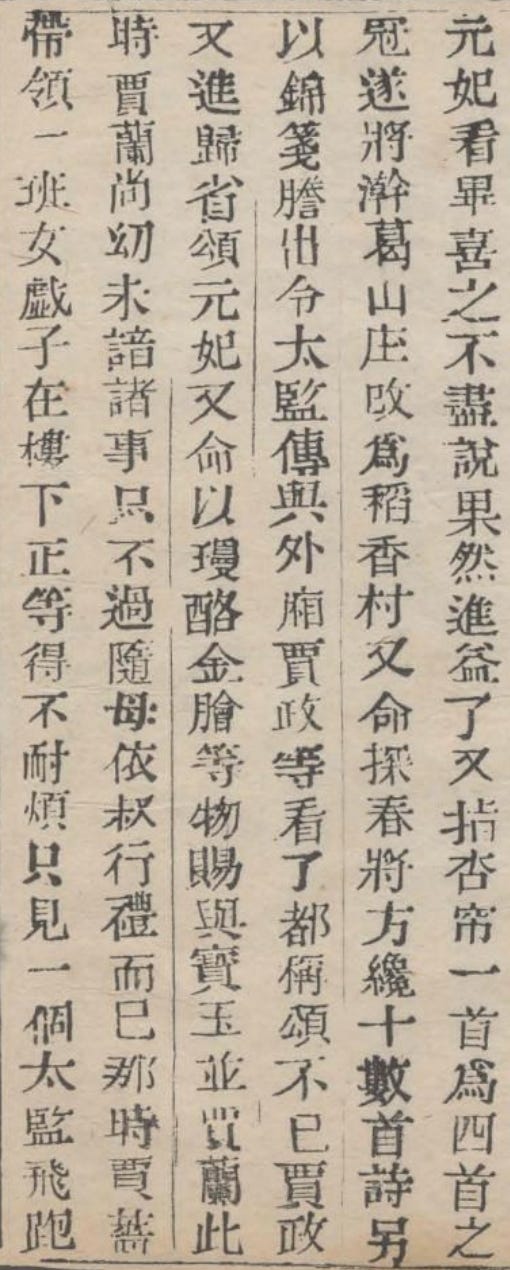 元妃看畢喜之不盡說果然進益了又指杏帘一首爲四首之
冠遂將澣葛山庄改爲稻香村又命探春將方纔十數首詩另
以錦箋謄出令太監傳與外廂賈政等看了都稱頌不已賈政
又進歸省頌元妃又命以瓊酪金膾等物賜與寶玉並賈蘭此
時賈蘭尚幼未諳諸事只不過隨母依叔行禮而已那時賈薔
帶領一班女戲子在樓下正等得不耐煩只見一個太監飛跑